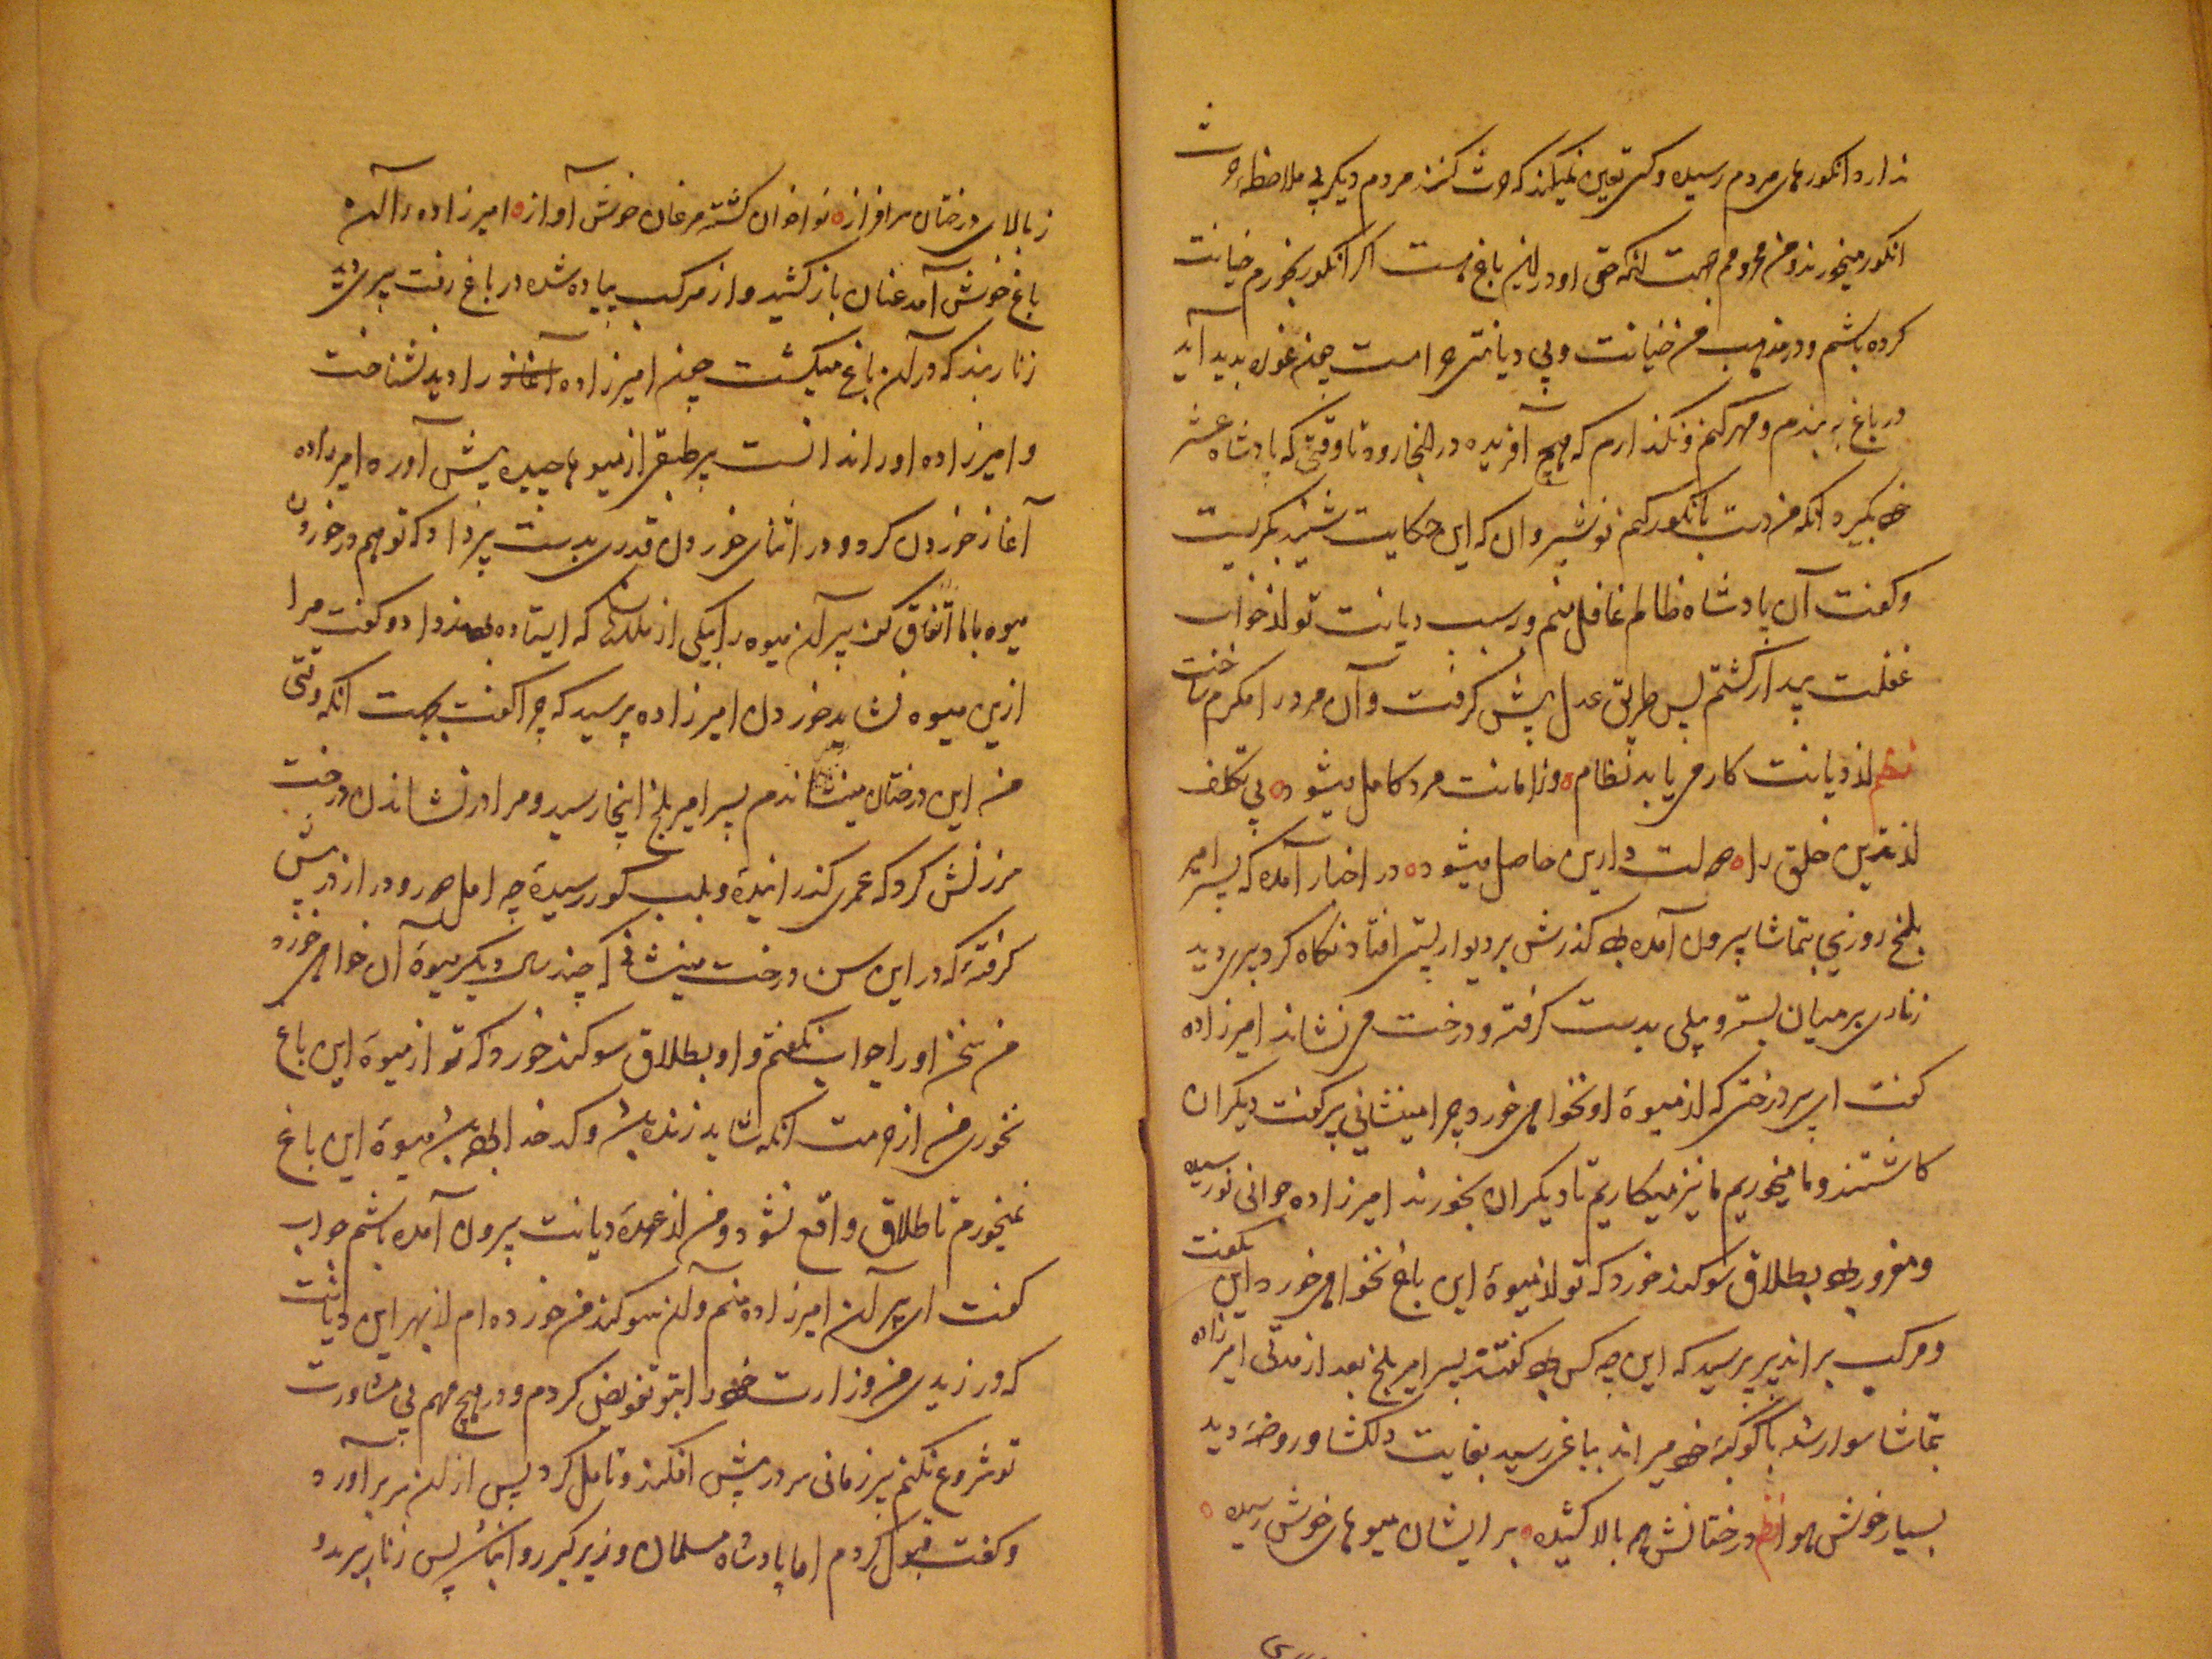 ندارد انکورهای مردم رسیده و کسی تعین نمیکند که حرث کنند مردم دیکر بی ملاحظه حرث
انکور میخورند و من محرومم بجهت انکه حق او در این باغ هست اکر انکور بخورم خیانت
کرده باشم و در مذهب من خیانت و بی دیانتی حرامست چون غوره بدید آید
در باغ به بندم و مهر کنم و نکذارم که هیچ آفریده در انجا رود تا وقتی که پادشاه عشر
خود بکیرد انکه من دست بانکور کنم نوشیروان که این حکایت شنید بکریست
و کفت آن پادشاه ظالم غافل منم و بسبب دیانت تو از خواب
غفلت بیدار کشتم پس طریق عدل پیش کرفت و آن مرد را مکرم ساخت
نظم از دیانت کار می یابد نظام وز امانت مرد کامل میشود بی تکلف
از تدین خلق را دولت دارین حاصل میشود در اخبار آمده که پسر امیر
بلخ روزی بتماشا بیرون آمده بود کذرش بر دیوار بستی افتاد نکاه کرد پیری دید
زناری بر میان بسته و بیلی بدست کرفته و درخت می نشاند امیرزاده
کفت ای پیر درختی که از میوهٔ او نخواهی خورد چرا مینشانی پیر کفت دیکران
کاشتند و ما میخوریم ما نیز میکاریم تا دیکران بخورند امیرزاده جوانی نورسیده
و مغرور بود بطلاق سوکند خورد که تو از میوهٔ این باغ نخواهی خورد این بکفت
و مرکب براند پیر پرسید که این چه کس بود کفتند پسر امیر بلخ بعد از مدتی امیرزاده
بتماشا سوار شده با کوکبهٔ خود میراند بباغی رسید بغایت دلکشا و روضهٔ دید
بسیار خوش هوا نظم درختانش همه بالا کشیده بر ایشان میوهای خوش رسیده
ز بالای درختان سرافراز نواخوان کشته مرغان خوش آواز امیرزاده را آن
باغ خوش آمد عنان باز کشید و از مرکب پیاده شده در باغ رفت پیری دید
زناربند که در آن باغ میکشت چون امیرزاده را دید نشناخت
و امیرزاده او را ندانست پیر طبقی از میوها چیده پیش آورد امیرزاده
آغاز خوردن کرد و در اثنای خوردن قدری بدست پیر داد که تو هم در خوردن
میوه با ما اتفاق کن پیر آن میوه را بیکی از ملازمان که ایستاده بودند داد و کفت مرا
ازین میوه نشاید خوردن امیرزاده پرسید که چرا کفت بجهت انکه وقتی
من این درختان مینشاندم پسر امیر بلخ اینجا رسید و مرا در نشاندن درخت
سرزنش کرد که عمری کذرانیدهٔ و بلب کور رسیدهٔ چه امل دور و دراز در پیش
کرفتهٔ که در این سن درخت مینشانی که چند سال دیکر میوهٔ آن خواهی خورد
من سخن او را جواب نکفتم و او بطلاق سوکند خورد که تو از میوهٔ این باغ
نخوری من از جهت انکه شاید زنده باشد و کدخدا بود باشد میوهٔ این باغ
نمیخورم تا طلاق واقع نشود و من از عهدهٔ دیانت بیرون آمده باشم جواب
کفت ای پیر آن امیرزاده منم و آن سوکند من خورده ام از بهر این دیانت
که ورزیدی من وزارت خود را بتو تفویض کردم و در هیچ مهم بی مشاورت
تو شروع نکنم پیر زمانی سر در پیش افکند و تامل کرد پس از آن سر برآورد
و کفت قبول کردم اما پادشاه مسلمان وزیر کبر روا نباشد پس زنار ببرید و